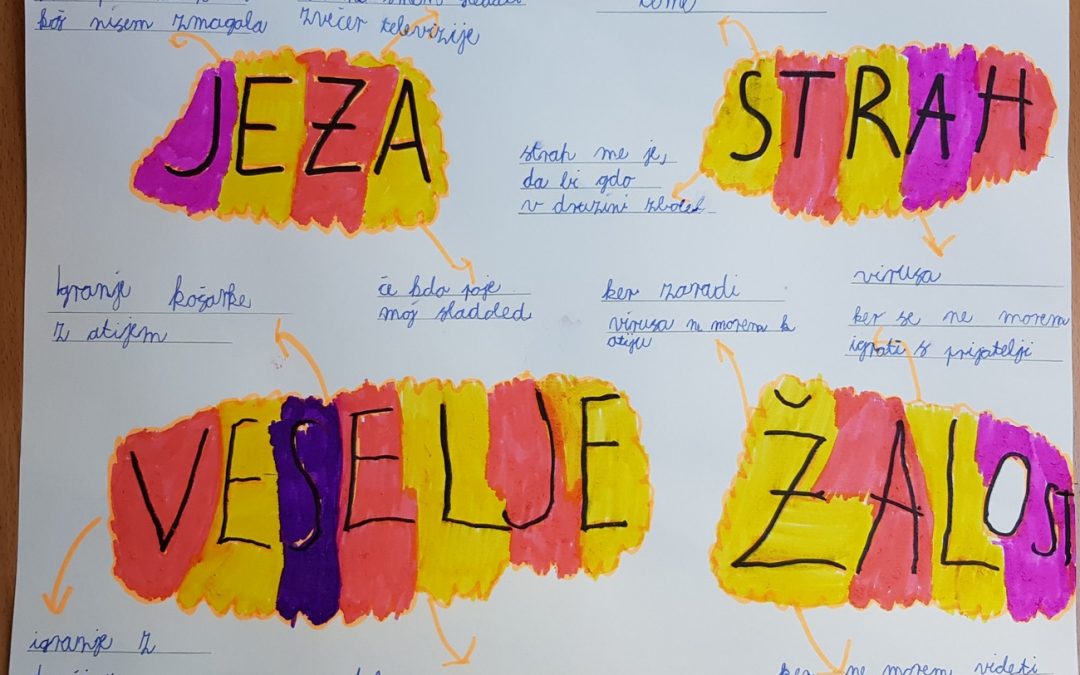 koš nisem zmagala
zvečer televizije
JEZA
STRAH
strah me je,
da bi gdo
v druzini zbolel
virusa
Igranje košarke
z atijem
če kdo poje
moj sladoled
ker zaradi
virusa ne morem k
atiju
ker se ne morem
igrati s prijatelji
VESELJE
ŽALOST
igranje z
ker ne morem videti